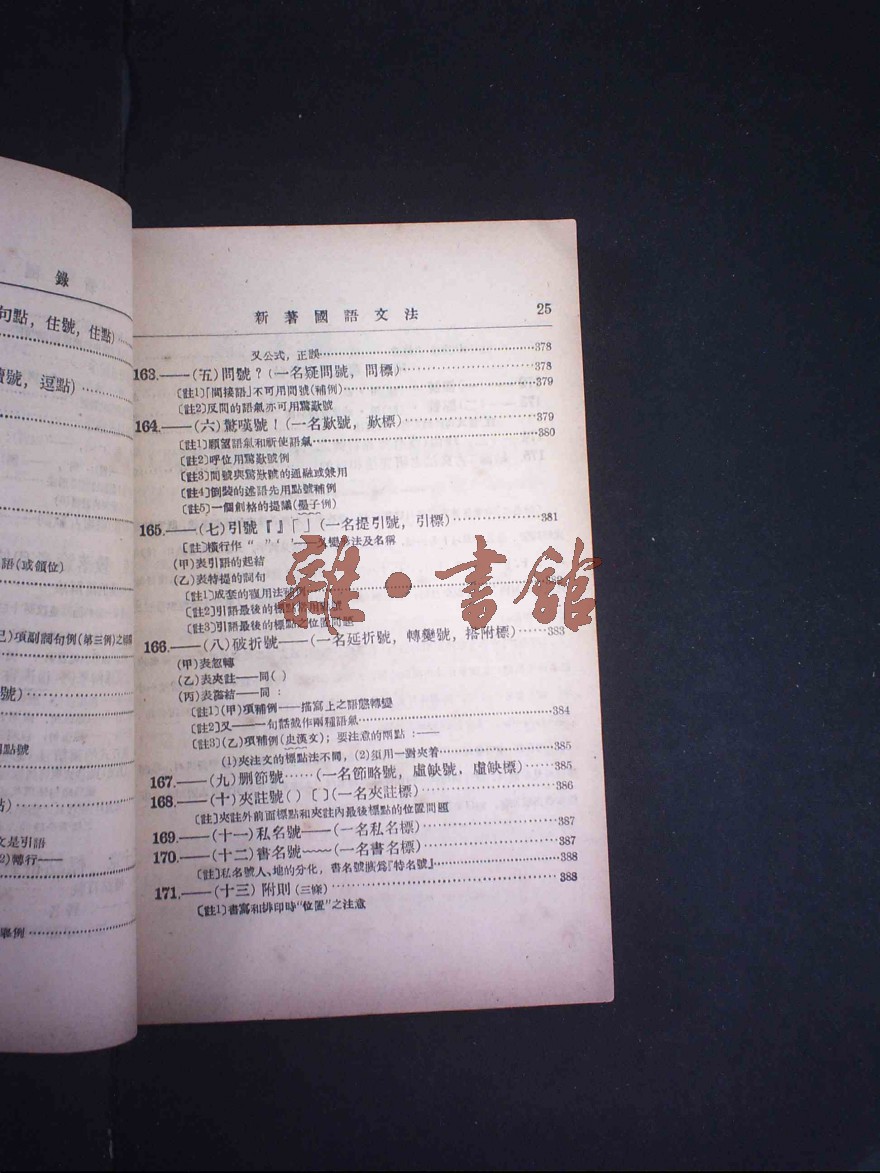 錄
句點，住號，住點)
賣號，逗點)
語(或領位)
己)項副詞句例(第三例)之補
號)
點號
點)
文是引語
2)轉行——
舉例
新著國語文法 25
又公式，正誤 378
163.——(五)問號？(一名疑問號，問標) 378
〔註1〕「間接語」不可用問號(補例) 379
〔註2〕反問的語氣亦可用驚歎號
164.——(六)驚嘆號！(一名歎號，歎標) 379
〔註1〕願望語氣和祈使語氣 380
〔註2〕呼位用驚歎號例
〔註3〕問號與驚歎號的通融或兼用
〔註4〕倒裝的述語先用點號補例
〔註5〕一個創格的提議(墨子例)
165.——(七)引號『』「」(一名提引號，引標) 381
〔註〕橫行作“ ”‘ ’ 法及名稱
(甲)表引語的起結
(乙)表特提的詞句
〔註1〕成套的復用法補例
〔註2〕引語最後的標點 號
〔註3〕引語最後的標點之位置問題
166.——(八)破折號——(一名延折號，轉變號，搭附標) 383
(甲)表忽轉
(乙)表夾註——同( )
(丙)表總結——同：
〔註1〕(甲)項補例——描寫上之語態轉變
〔註2〕又——一句話截作兩種語氣 384
〔註3〕(乙)項補例(史漢文)；要注意的兩點：——
(1)夾注文的標點法不同，(2)須用一對夾着 385
167.——(九)刪節號……(一名節略號，虛缺號，虛缺標) 385
168.——(十)夾註號( )〔 〕(一名夾註標) 386
〔註〕夾註外前面標點和夾註內最後標點的位置問題
169.——(十一)私名號——(一名私名標) 387
170.——(十二)書名號﹏﹏(一名書名標) 387
〔註〕私名號人、地的分化，書名號擴爲『特名號』 388
171.——(十三)附則(三條) 388
〔註1〕書寫和排印時“位置”之注意
雜·書館